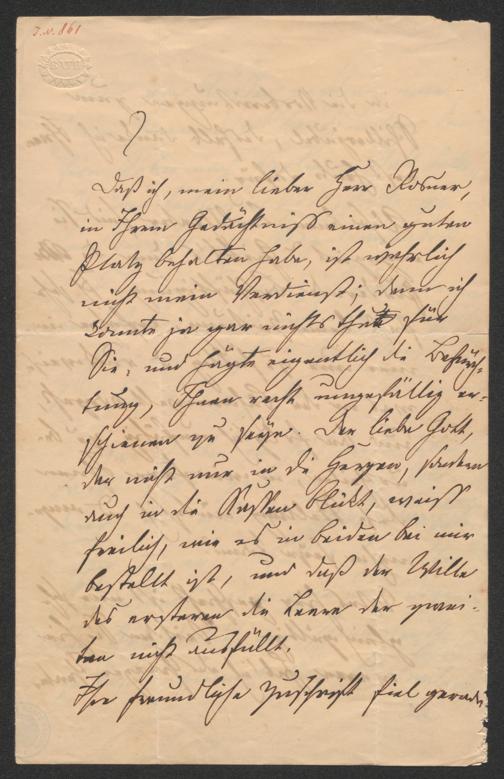 J.N. 861
BATH
Daß ich, mein lieber Herr Rosner,
in Ihrem Gedächtniss einen guten
Platz behalten habe, ist wahrlich
nicht mein Verdienst; denn ich
konnte ja gar nichts thun für
Sie, und hegte eigentlich die Befürch-
tung, Ihnen recht ungefällig er-
schienen zu seyn. Der liebe Gott,
der nicht nur in die Herzen, sondern
auch in die Kassen blickt, weiss
freilich, wie es in beiden bei mir
bestellt ist, und daß der Wille
des ersteren die Leere der zwei-
ten nicht ausfüllt.
Ihre freundliche Zuschrift fiel gerade